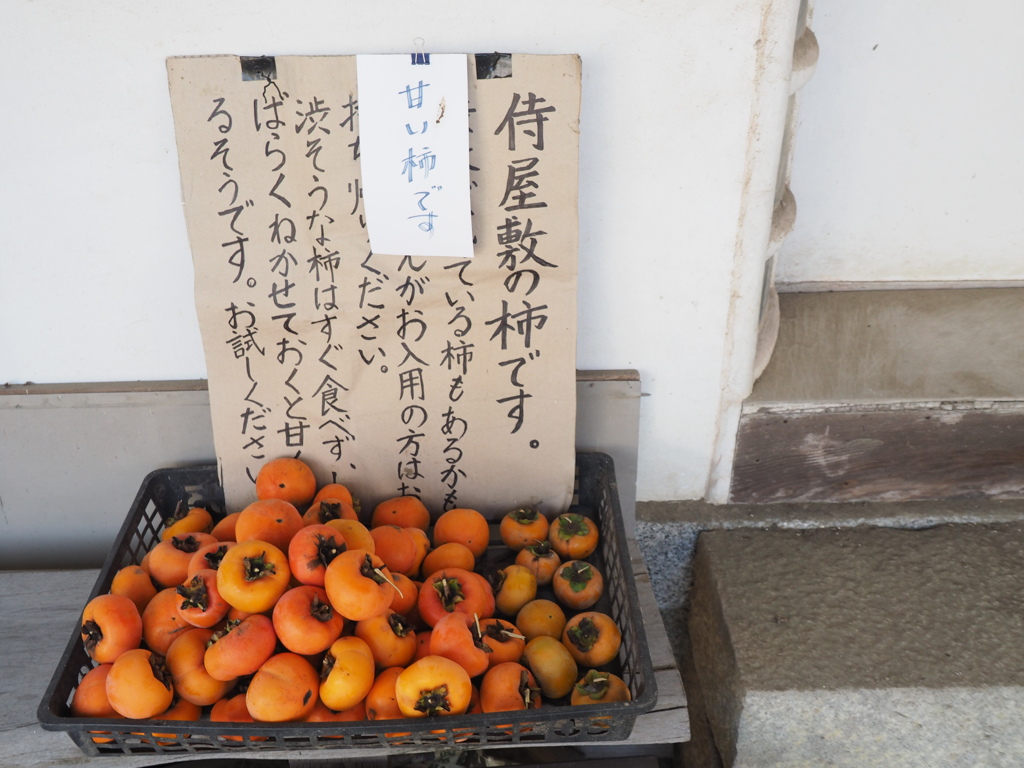 侍屋敷の柿です。
ている柿もあるかも
んがお入用の方はお
ください。
渋そうな柿はすぐ食べず、
ばらくねかせておくと甘く
るそうです。お試しください
甘い柿です